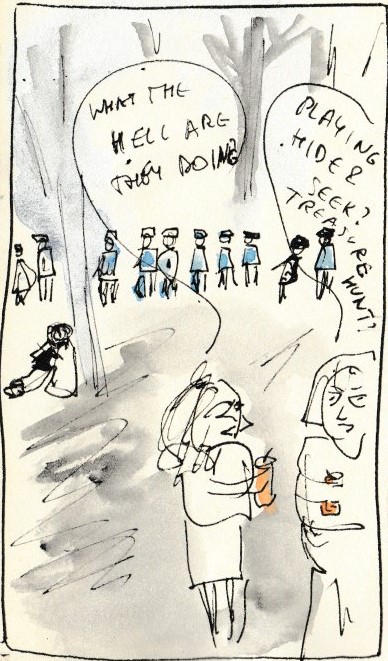 WHAT THE
HELL ARE
THEY DOING
PLAYING
HIDE &
SEEK?
TREASURE
HUNT?